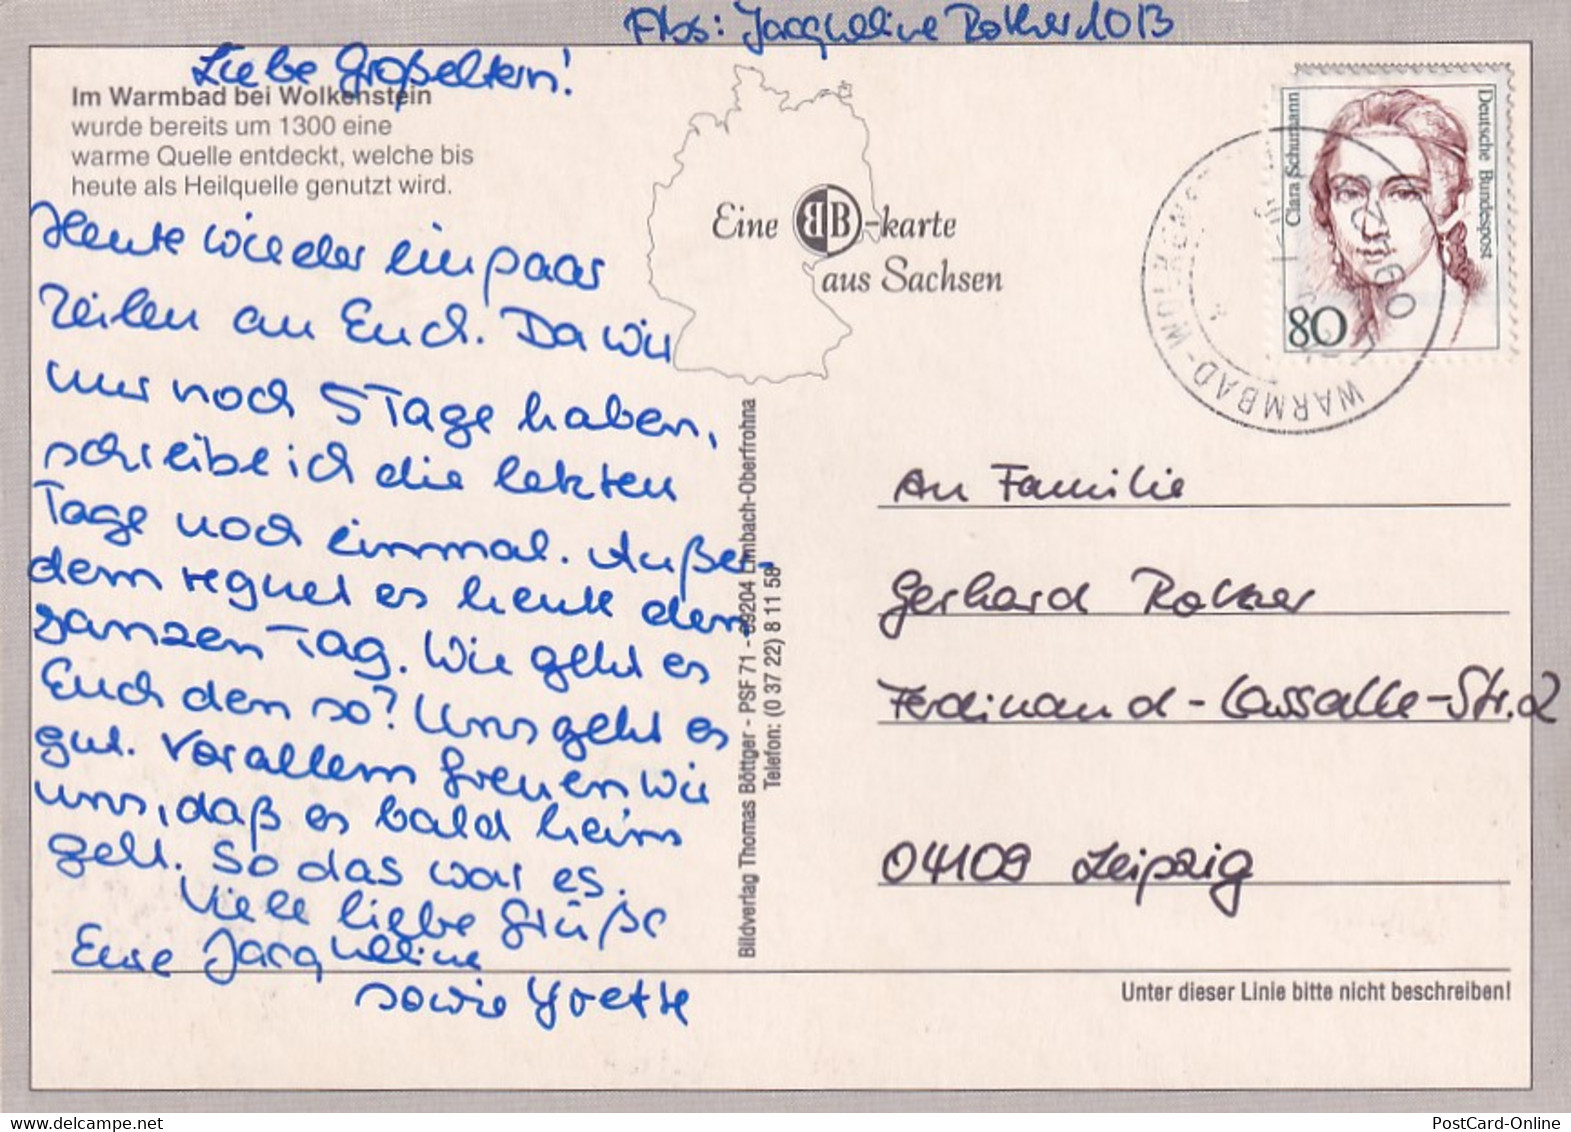 Abs: Jacqueline Rother 10B
Liebe Großeltern!
Im Warmbad bei Wolkenstein
wurde bereits um 1300 eine
warme Quelle entdeckt, welche bis
heute als Heilquelle genutzt wird.
Heute wieder ein paar
Zeilen an Euch. Da wir
nur noch 5 Tage haben,
schreibe ich die letzten
Tage noch einmal. Außer-
dem regnet es heute den
ganzen Tag. Wie geht es
Euch den so? Uns geht es
gut. Vor allem freuen wir
uns, daß es bald heim
geht. So das war es.
Viele liebe Grüße
Eure Jacqueline
sowie Yvette
Eine BB-karte
aus Sachsen
Bildverlag Thomas Böttger - PSF 71 - 09204 Limbach-Oberfrohna
Telefon: (0 37 22) 8 11 58
Clara Schumann
Deutsche Bundespost
80
WARMBAD-WOLKENST
An Familie
Gerhard Rother
Ferdinand-Lassalle-Str. 2
04109 Leipzig
Unter dieser Linie bitte nicht beschreiben!
PostCard-Online